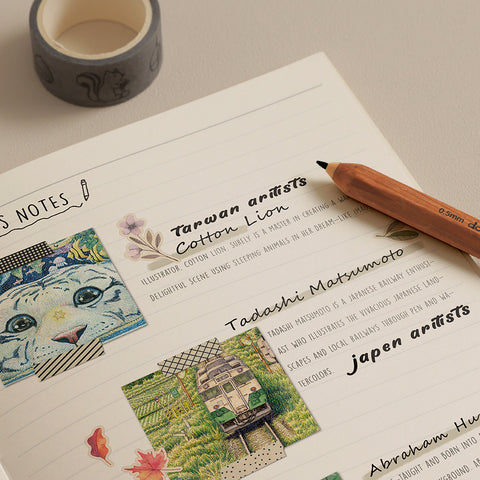 S NOTES
Tarwan artists
Cotton Lion
ILLUSTRATOR. COTTON LION, SURELY IS A MASTER IN CREATING A
DELIGHTFUL SCENE USING SLEEPING ANIMALS IN HER DREAM-LIKE
Tadashi Matsumoto
TADASHI MATSUMOTO IS A JAPANESE RAILWAY ENTHUSI-
AST WHO ILLUSTRATES THE VIVACIOUS JAPANESE LAND-
SCAPES AND LOCAL RAILWAYS THROUGH PEN AND WA-
TERCOLORS.
japen artists
Abraham Hu
-TAUGHT AND BORN INTO
0.5mm